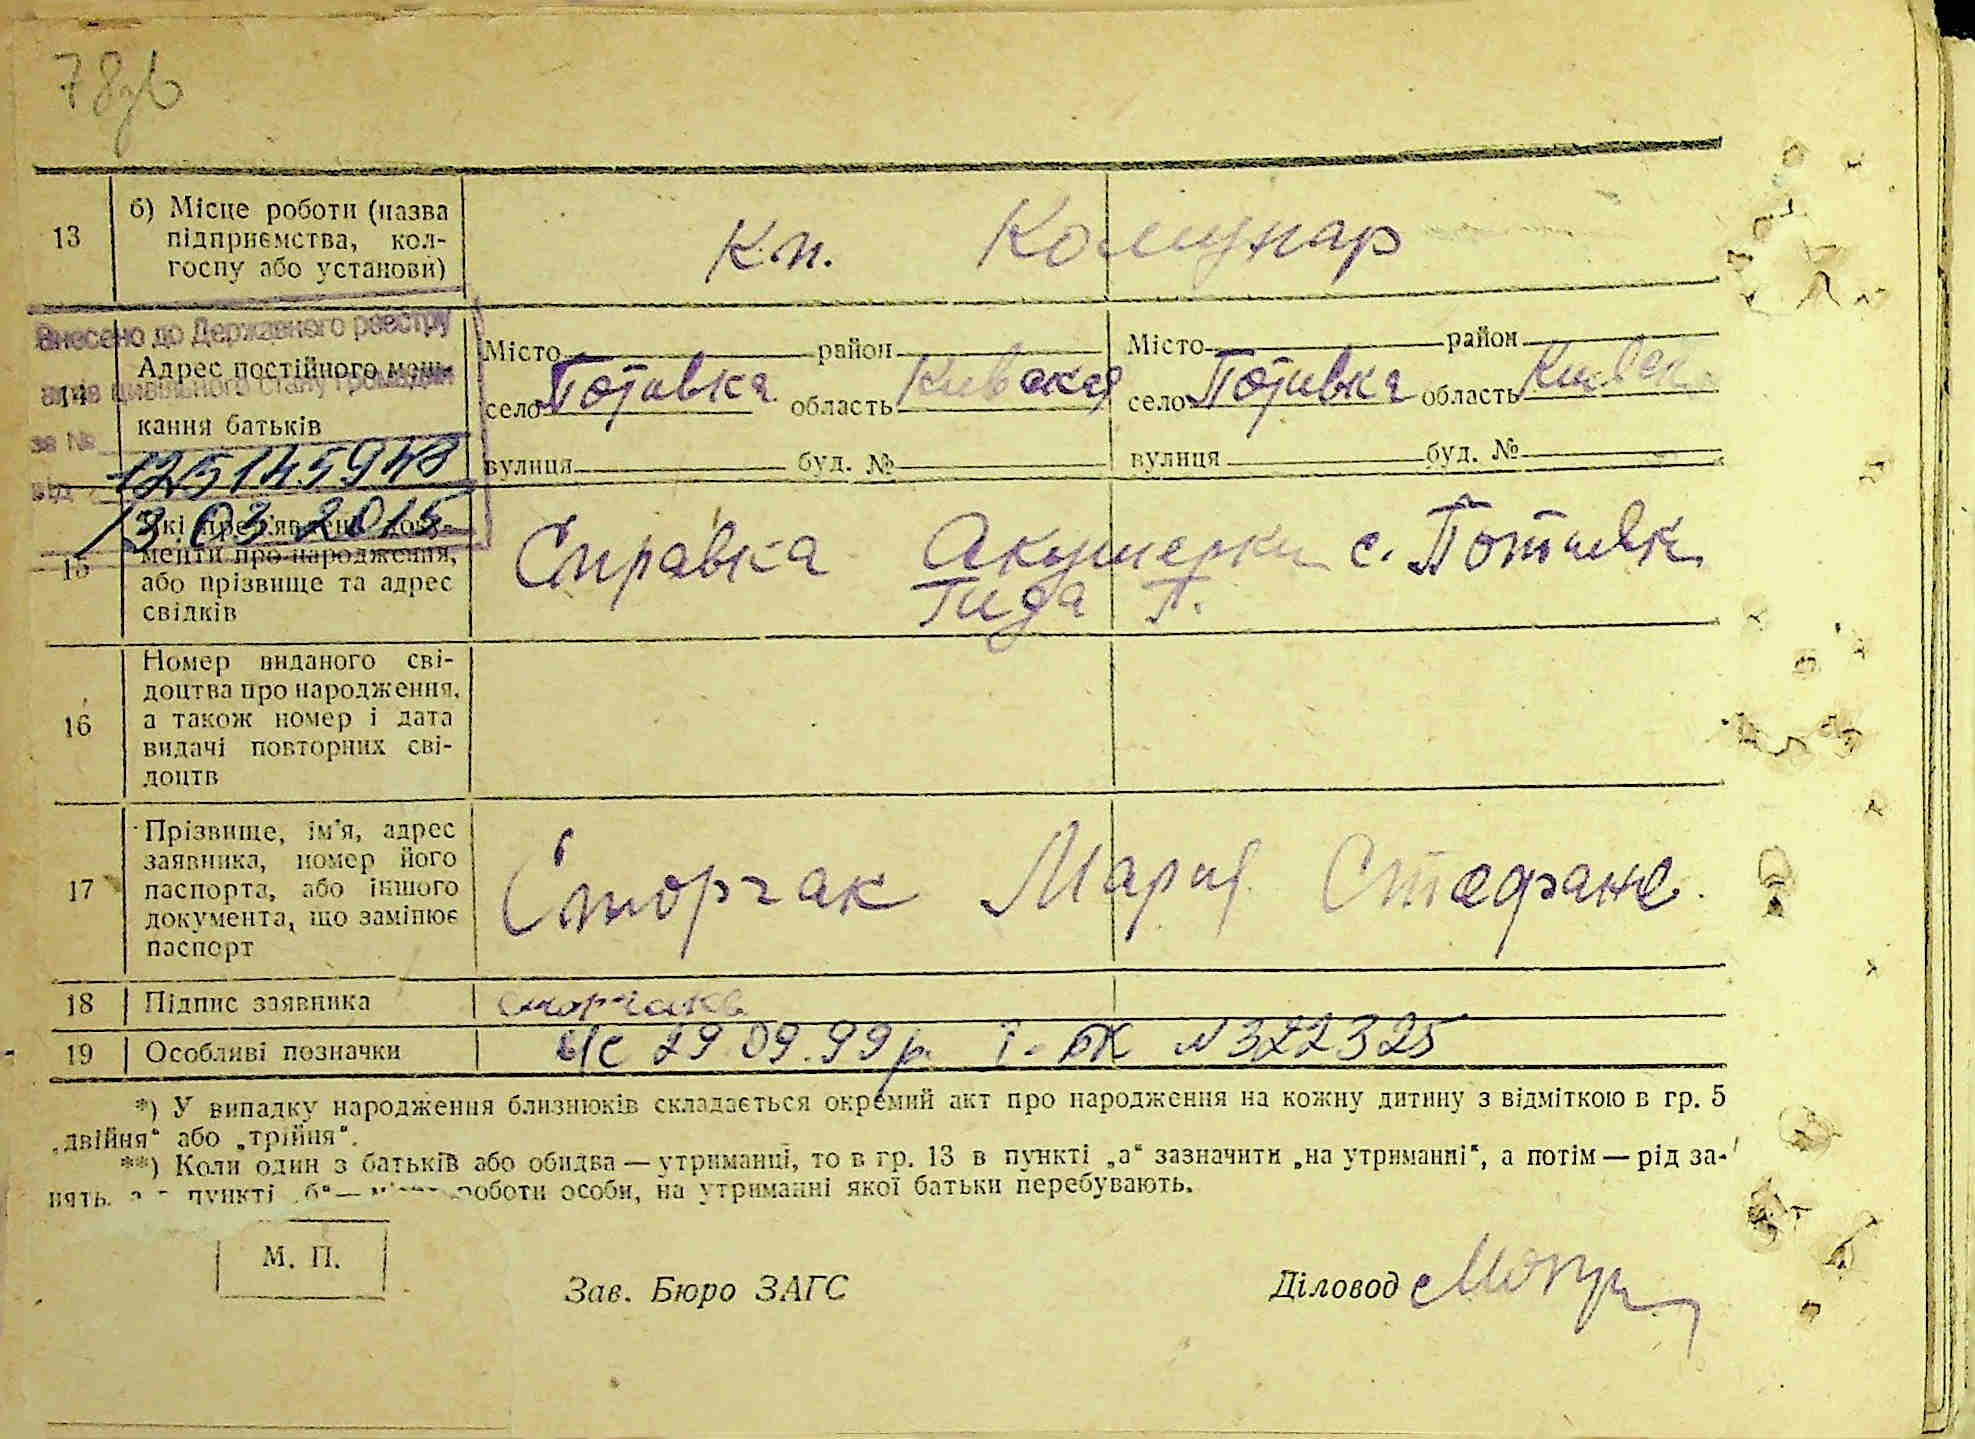 78зв
13
б) Місце роботи (назва
підприємства, кол-
госпу або установи)
к-п. Комунар
Внесено до Державного реєстру
актів цивільного стану громадян
за №
125145948
від
13 03 2015
14
Адрес постійного меш-
кання батьків
Місто район
село Потивка область Кивская
вулиця буд. №
Місто район
село Потивка область Кивск.
вулиця буд. №
15
Які пред'явлені доку-
менти про народження,
або прізвище та адрес
свідків
Справка Акушерки с. Потиевк
Гида П.
16
Номер виданого сві-
доцтва про народження,
а також номер і дата
видачі повторних сві-
доцтв
17
Прізвище, ім'я, адрес
заявника, номер його
паспорта, або іншого
документа, що замінює
паспорт
Сторчак Мария Стефане.
18 Підпис заявника
19 Особливі позначки
в/с 29.09.99р. І-БК №322325
*) У випадку народження близнюків складається окремий акт про народження на кожну дитину з відміткою в гр. 5
„двійня“ або „трійня“.
**) Коли один з батьків або обидва — утриманці, то в гр. 13 в пункті „а“ зазначити „на утриманні“, а потім — рід за-
нять, пункті „б“ — роботи особи, на утриманні якої батьки перебувають.
М. П.
Зав. Бюро ЗАГС
Діловод